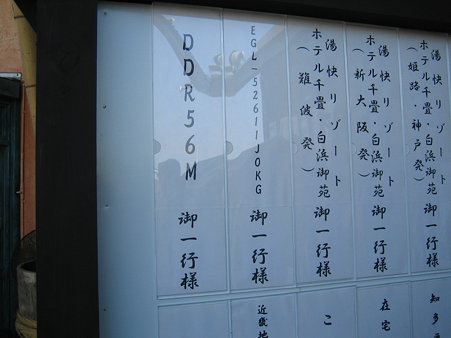 湯快リゾート
ホテル千畳・白浜御苑
（姫路・神戸発）
御一行様
湯快リゾート
ホテル千畳・白浜御苑
（新大阪発）
御一行様
湯快リゾート
ホテル千畳・白浜御苑
（難波発）
御一行様
EGL-52611JOKG
御一行様
DDR56M
御一行様
知多
在宅
こ
近畿地